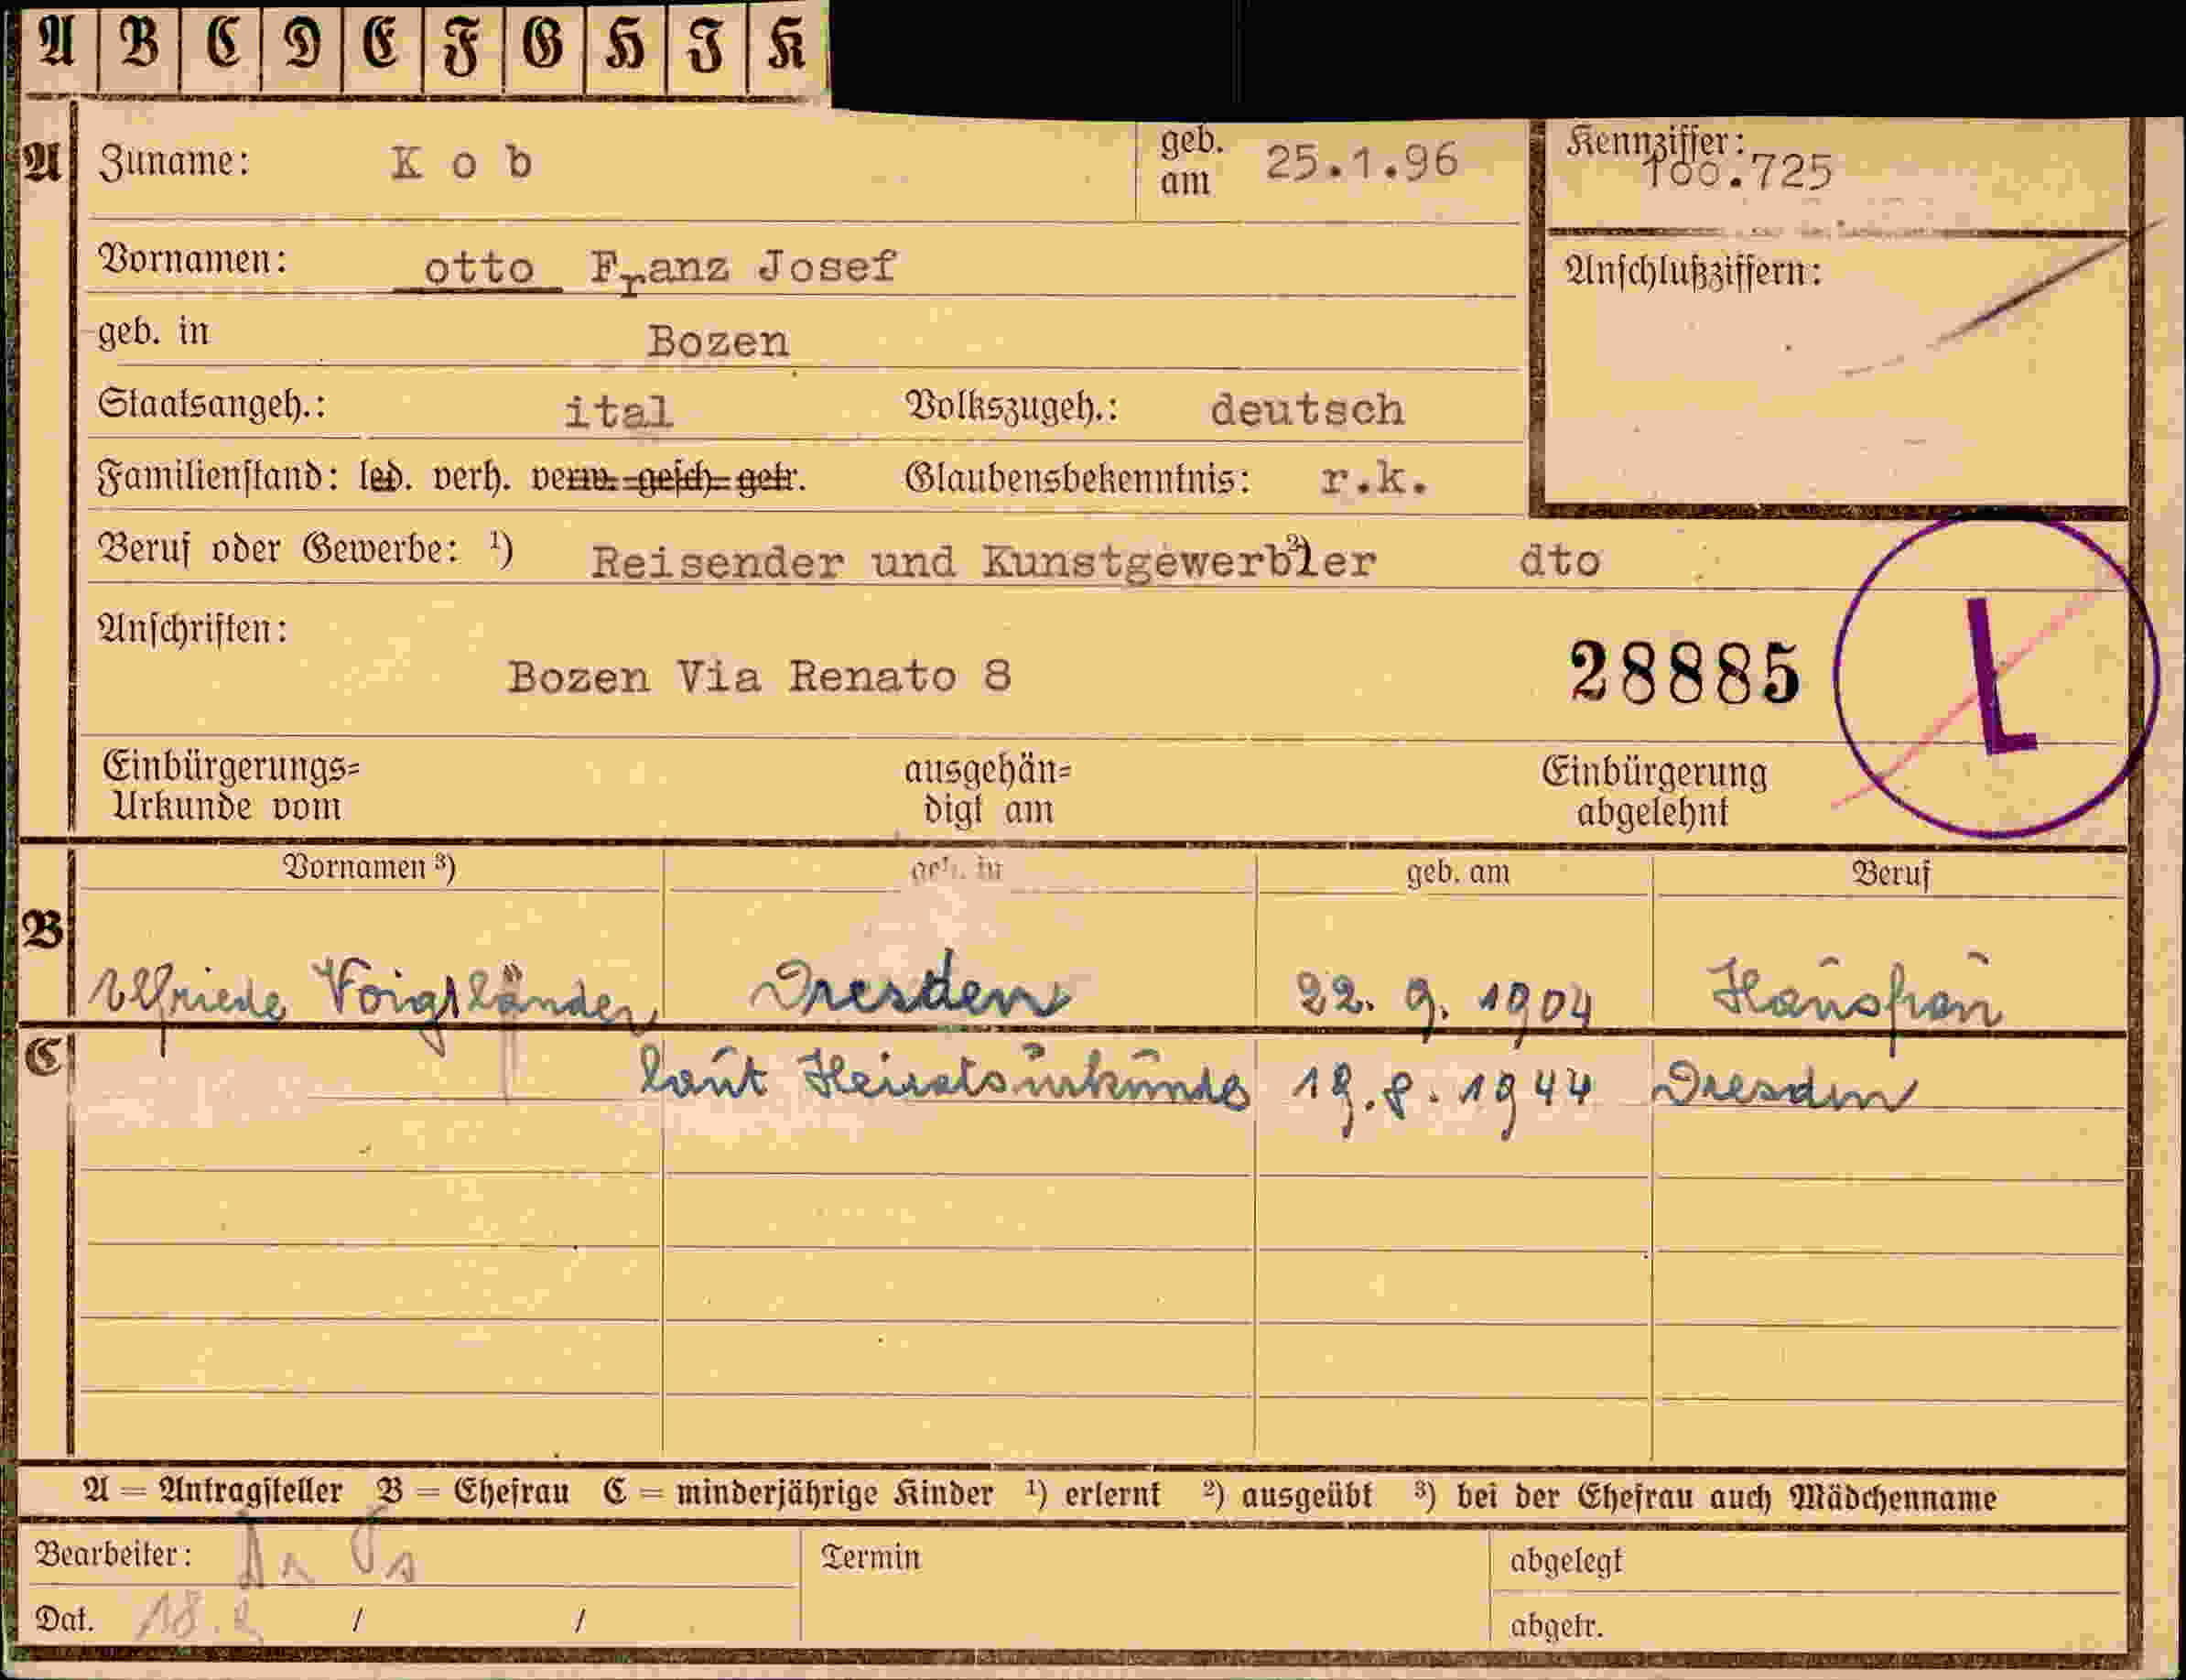 A B C D E F G H I K
A Zuname: K o b geb. am 25.1.96 Kennziffer: 100.725
Vornamen: otto Franz Josef Anschlußziffern:
geb. in Bozen
Staatsangeh.: ital Volkszugeh.: deutsch
Familienstand: led. verh. verw. gesch. getr. Glaubensbekenntnis: r.k.
Beruf oder Gewerbe: ¹) Reisender und Kunstgewerbler ²) dto
Anschriften:
Bozen Via Renato 8 28885 L
Einbürgerungs= ausgehän= Einbürgerung
Urkunde vom digt am abgelehnt
Vornamen ³) geb. in geb. am Beruf
B
Elfriede Voigtländer Dresden 22. 9. 1904 Hausfrau
C laut Heiratsurkunde 19.8.1944 Dresden
A = Antragsteller B = Ehefrau C = minderjährige Kinder ¹) erlernt ²) ausgeübt ³) bei der Ehefrau auch Mädchenname
Bearbeiter: Termin abgelegt
Dat. 18. / / abgetr.